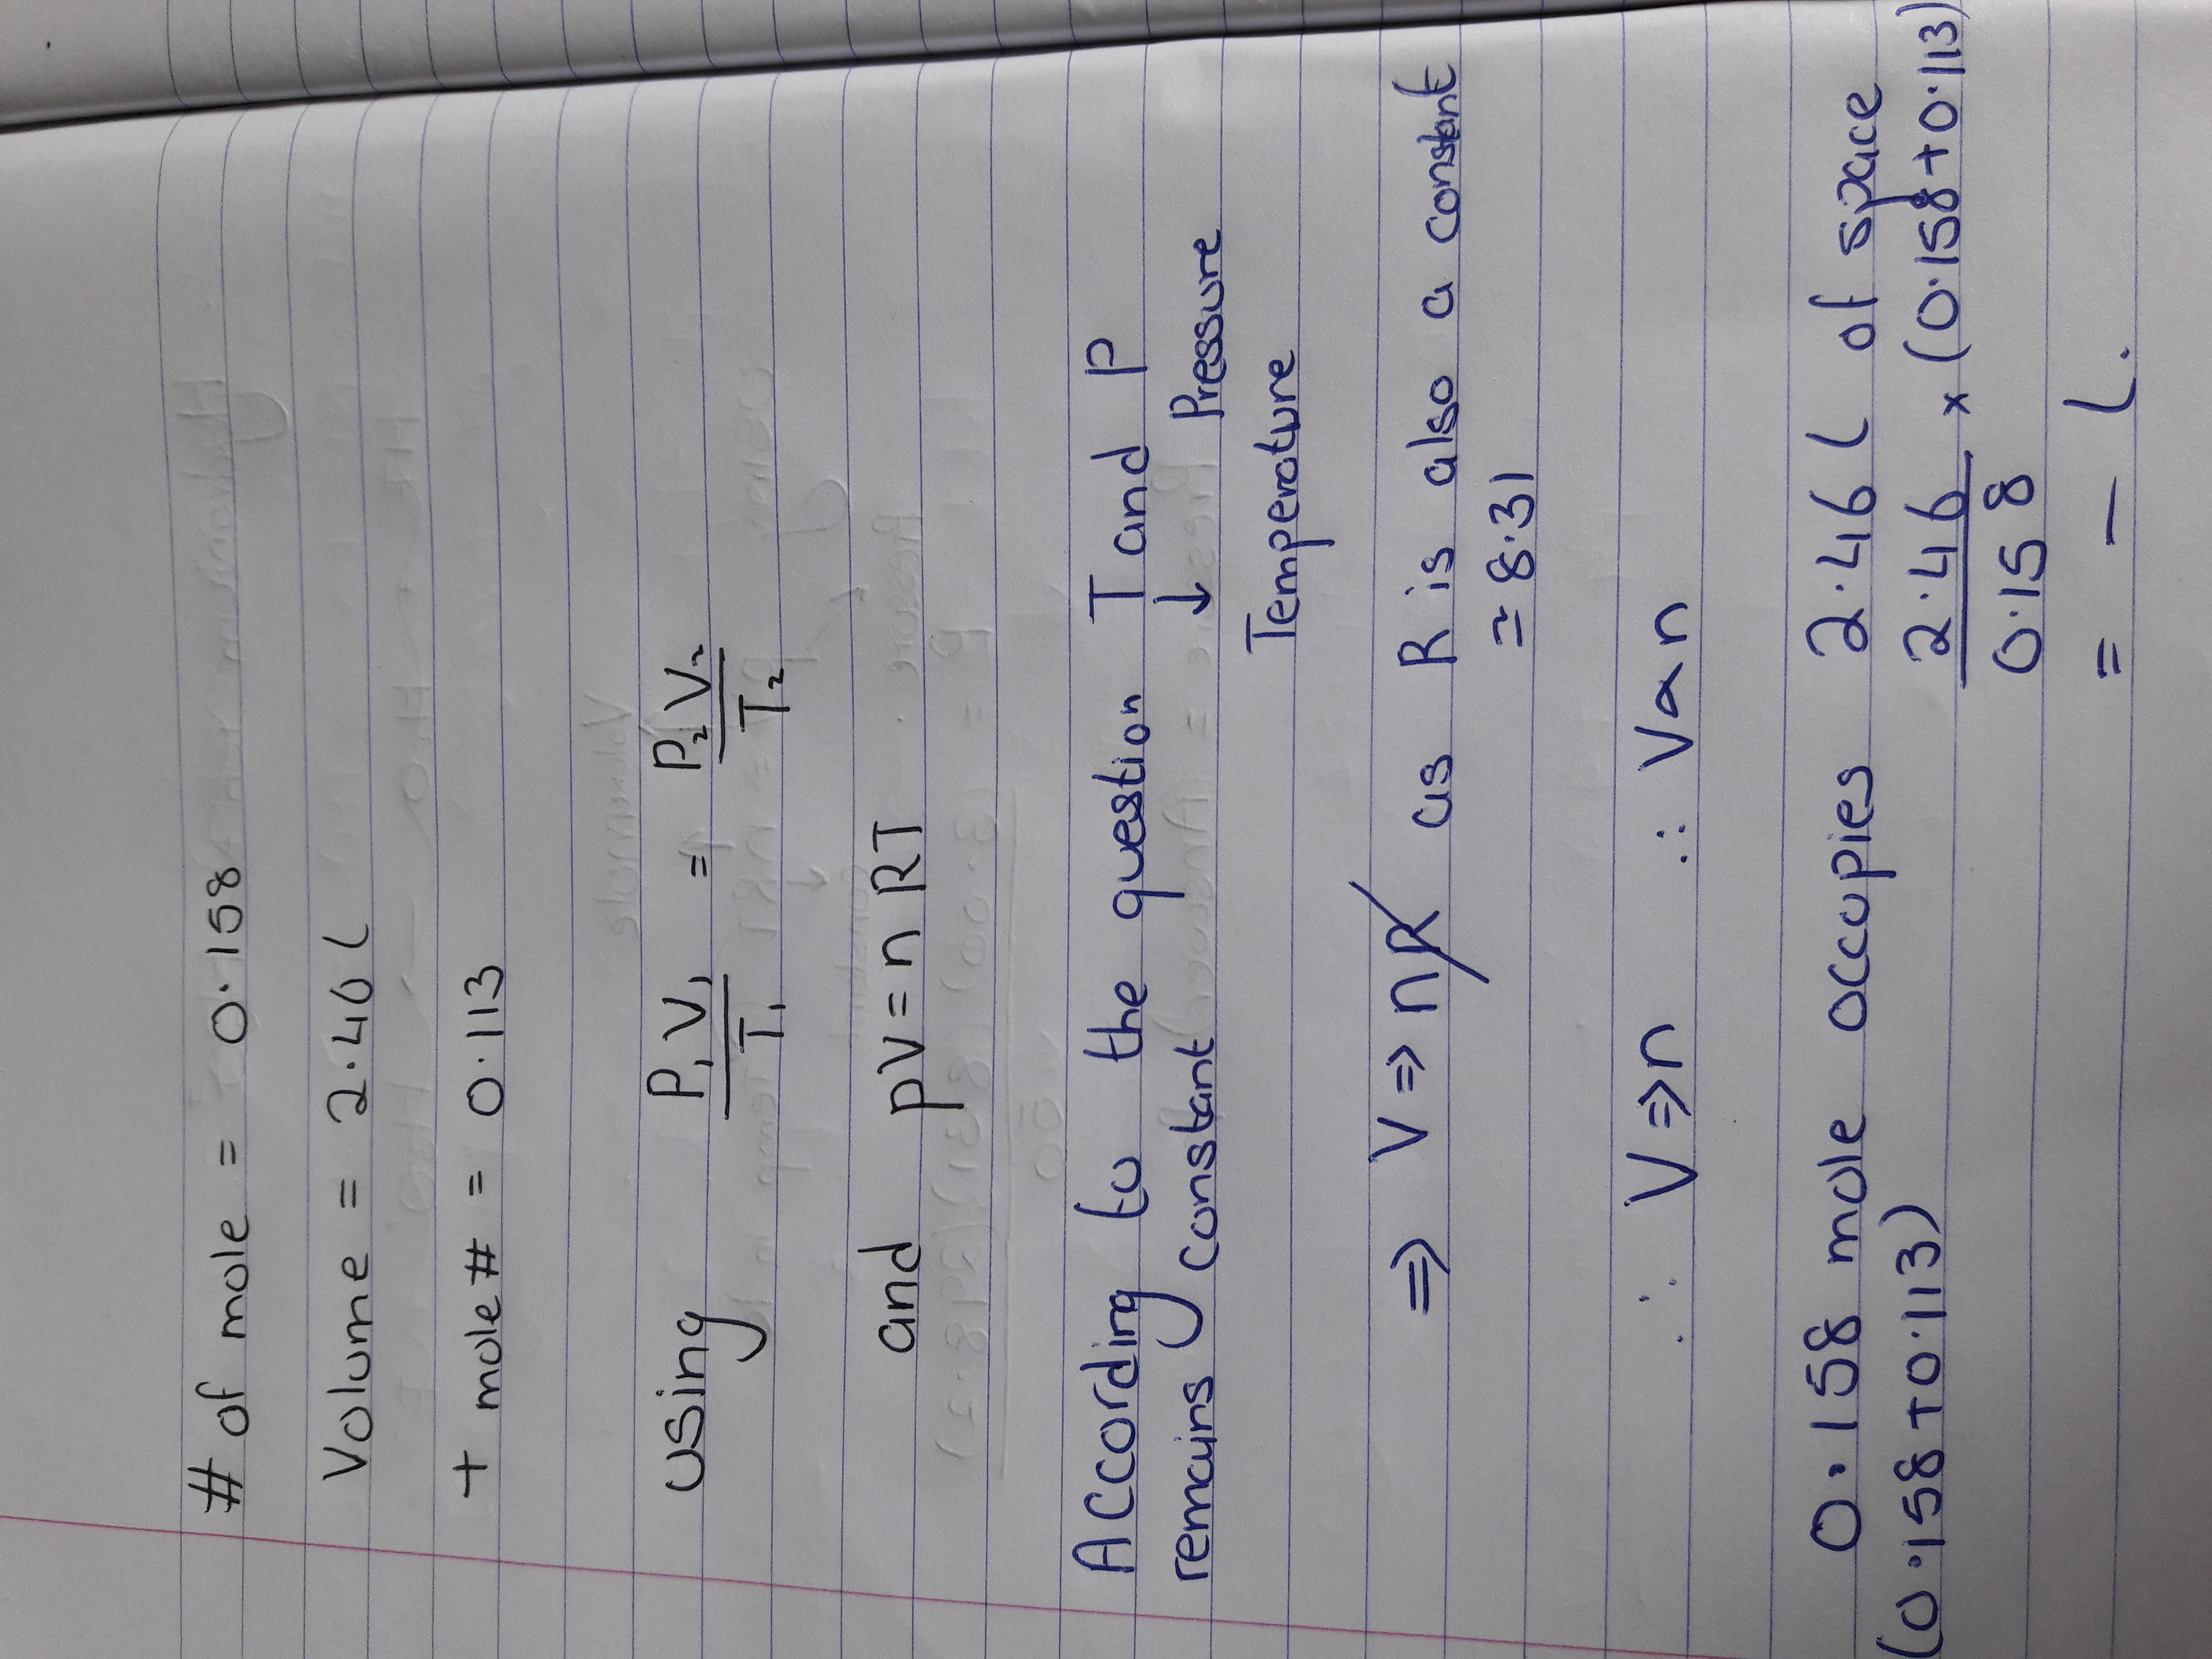 # of mole = 0.158
Volume = 2.46 L
+ mole # = 0.113
using P₁V₁/T₁ = P₂V₂/T₂
and pV = nRT
According to the question T and P
remains constant ↓ Pressure
Temperature
⇒ V ⇒ nR as R is also a constant
≃ 8.31
∴ V ⇒ n ∴ V α n
0.158 mole occupies 2.46 L of space
(0.158 + 0.113) 2.46/0.158 × (0.158 + 0.113)
= — L.